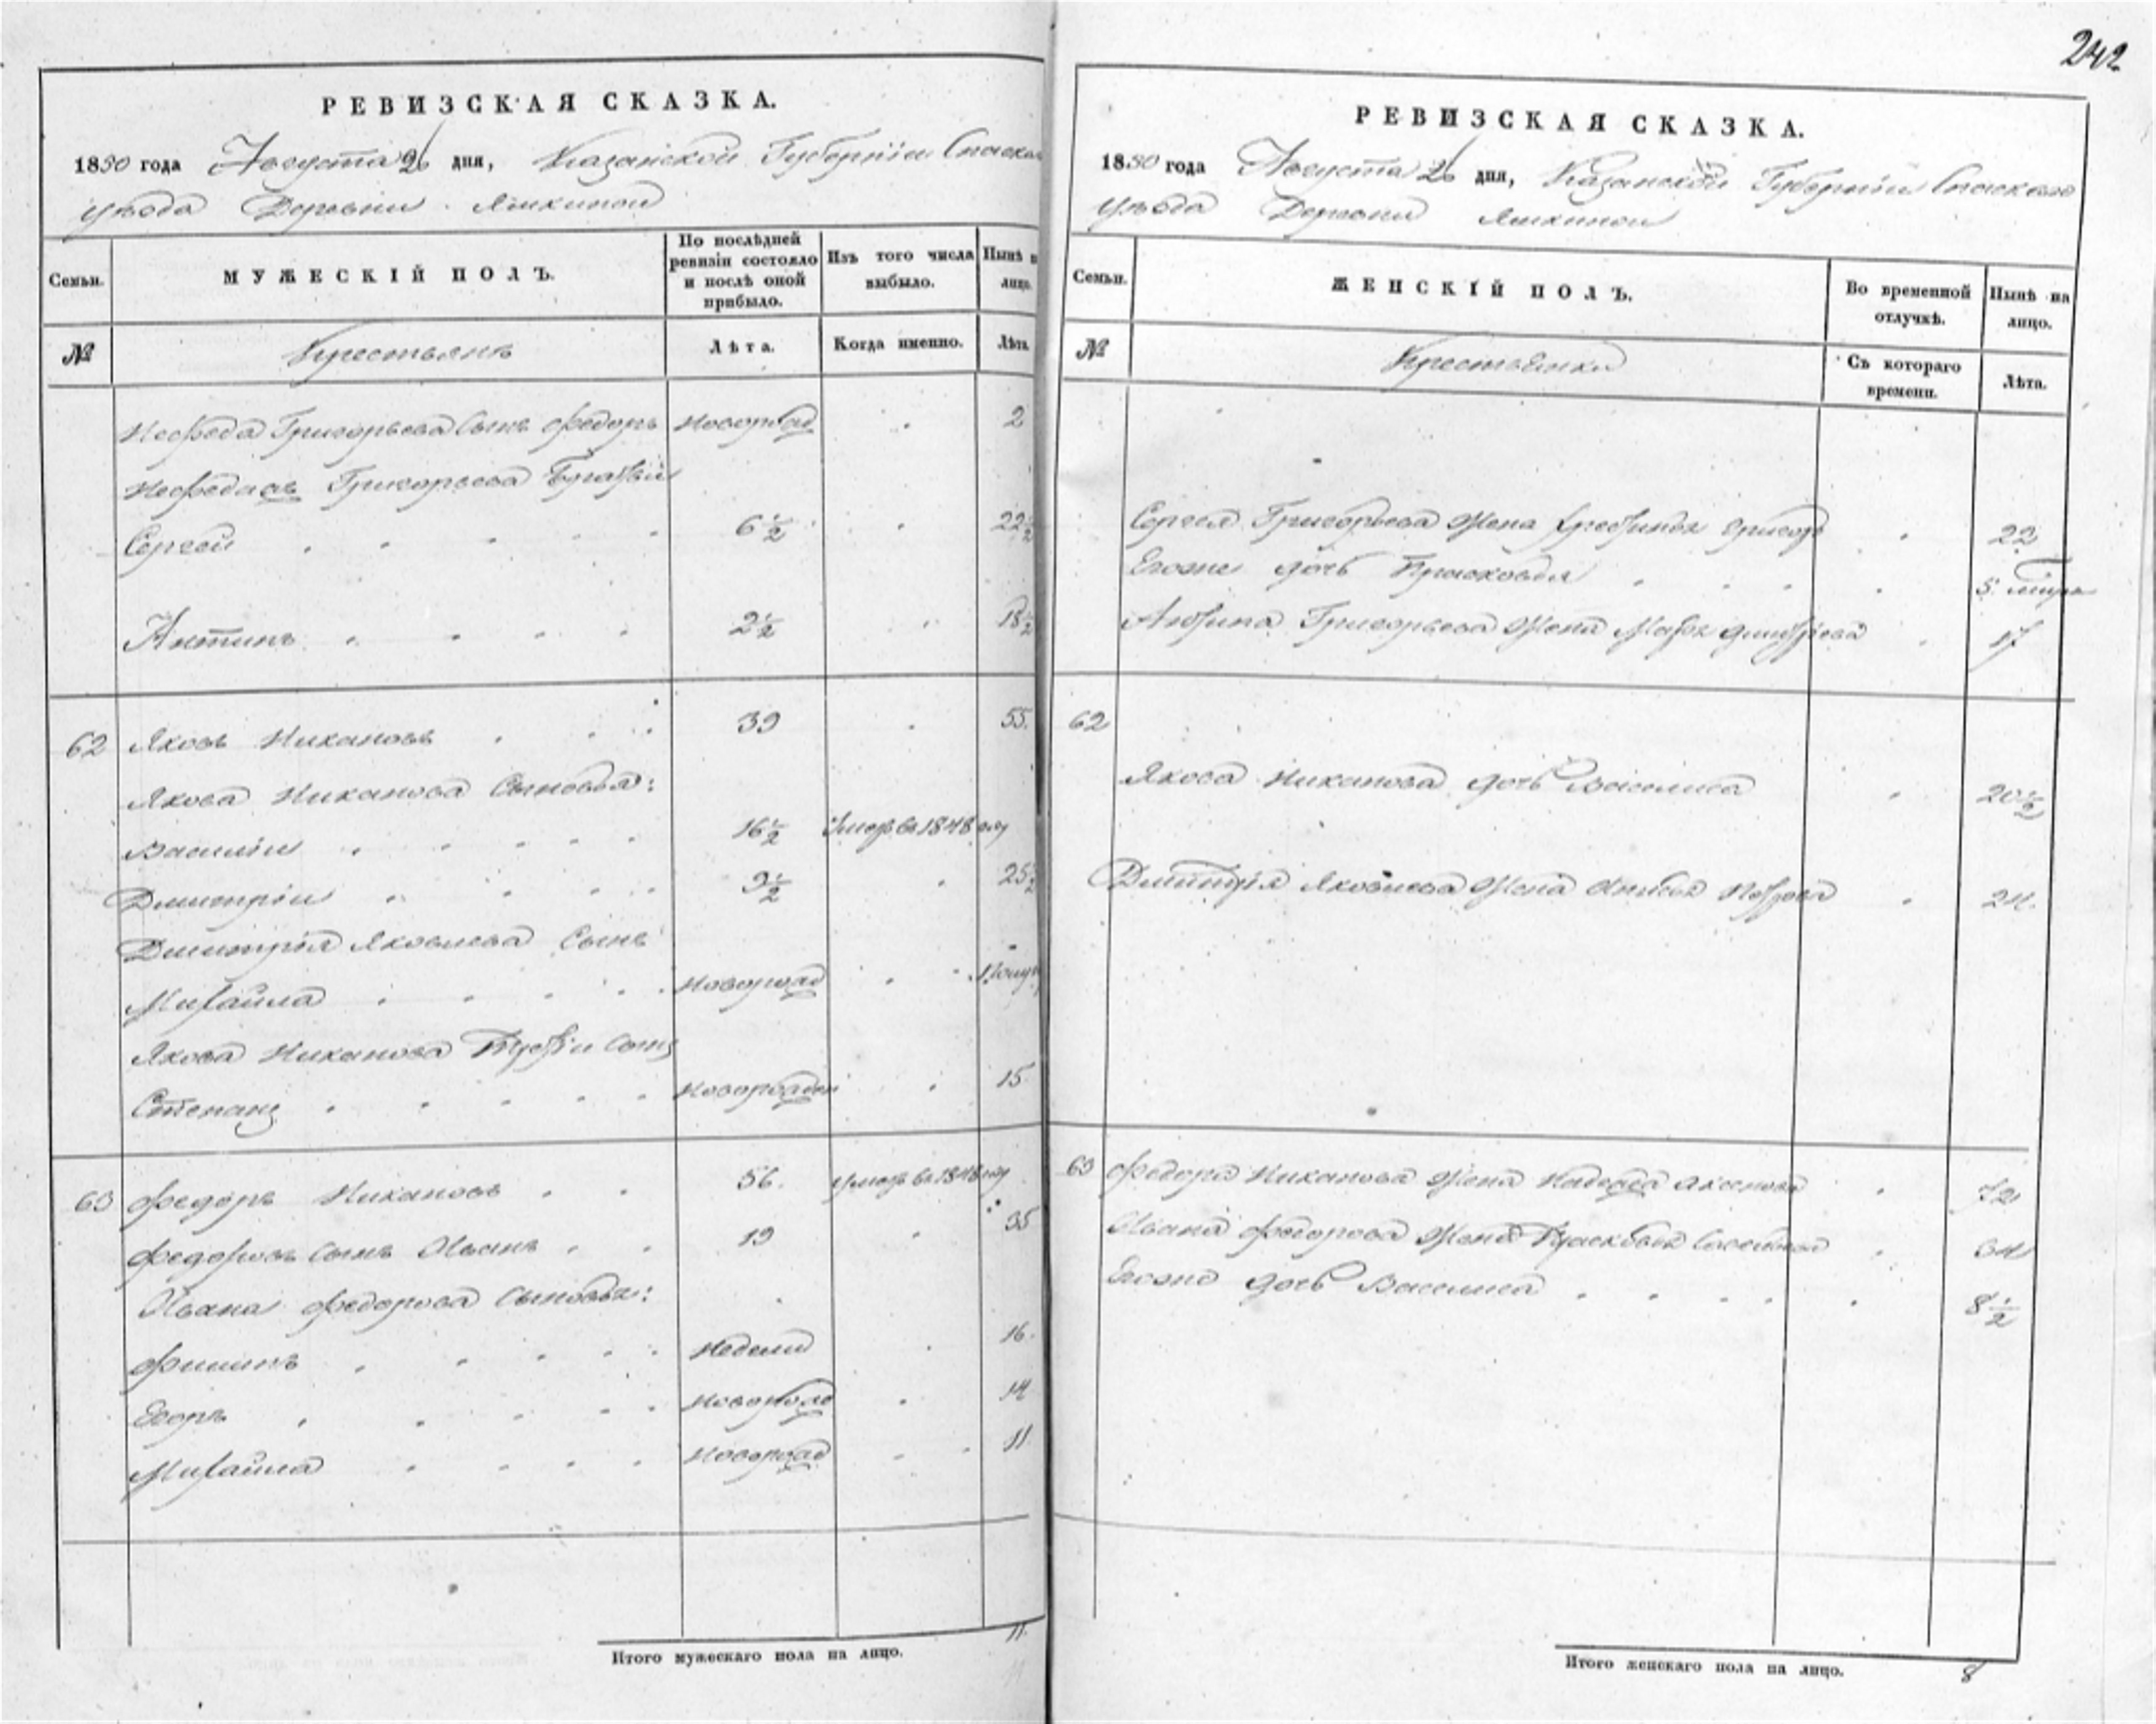 242
РЕВИЗСКАЯ СКАЗКА.
1850 года Августа 26 дня, Казанской Губернии Спаскаго
уѣзда Деревни Ямкиной
Семьи.
МУЖЕСКІЙ ПОЛЪ.
По послѣдней ревизіи состояло и послѣ оной прибыло.
Изъ того числа выбыло.
Нынѣ на лицо.
№
Крестьянъ
Лѣта.
Когда именно.
Лѣта.
Нефеда Григорьева Сынъ Федоръ новорожд 2
Григорьева Братья
Сергей 6 1/2 22 1/2
Антипъ 2 1/2 18 1/2
62 Яковъ Никановъ 39 55.
Якова Никанова Сыновья:
Василіи 16 1/2 Умеръ въ 1848 году
Дмитріи 9 1/2 25 1/2
Дмитрія Яковлева Сынъ
Михайла новорожд
Якова Никанова Третіи Сынъ
Степанъ новорожден 15
63 Федоръ Никановъ 56. умеръ въ 1848 году
Федоровъ Сынъ Иванъ 19 35
Ивана Федорова Сыновья:
Филипъ Недели 16.
Егоръ новорожд 14
Михайла новорожд 11
Итого мужескаго пола на лицо. 11.
РЕВИЗСКАЯ СКАЗКА.
1850 года Августа 26 дня, Казанской Губерніи Спаскаго
уѣзда Деревни Ямкиной
Семьи.
ЖЕНСКІЙ ПОЛЪ.
Во временной отлучкѣ.
Нынѣ на лицо.
№
Крестьянки
Съ котораго времени.
Лѣта.
Сергея Григорьева Жена 22
Егоже дочь Прасковья 5
Антипа Григорьева Жена 17
62
Якова Никанова дочь Василиса 20 1/2
Дмитрія Яковлева Жена Анисья Петрова 24.
63 Федора Никанова Жена Аксенова 72
Ивана Федорова Жена Прасковья 34
Егоже дочь Василиса 8 1/2
Итого женскаго пола на лицо. 8